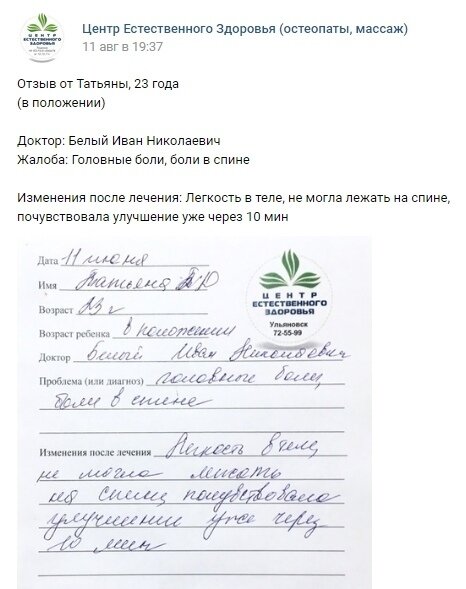 Центр Естественного Здоровья (остеопаты, массаж)
11 авг в 19:37
Отзыв от Татьяны, 23 года
(в положении)
Доктор: Белый Иван Николаевич
Жалоба: Головные боли, боли в спине
Изменения после лечения: Легкость в теле, не могла лежать на спине,
почувствовала улучшение уже через 10 мин
Дата 11 июня
Имя Татьяна
Возраст 23 г
Возраст ребенка в положении
Доктор Белый Иван Николаевич
Проблема (или диагноз) головные боли,
боли в спине
Изменения после лечения Легкость в теле,
не могла лежать
на спине, почувствовала
улучшении уже через
10 мин
ЦЕНТР
ЕСТЕСТВЕННОГО
ЗДОРОВЬЯ
Ульяновск
72-55-99